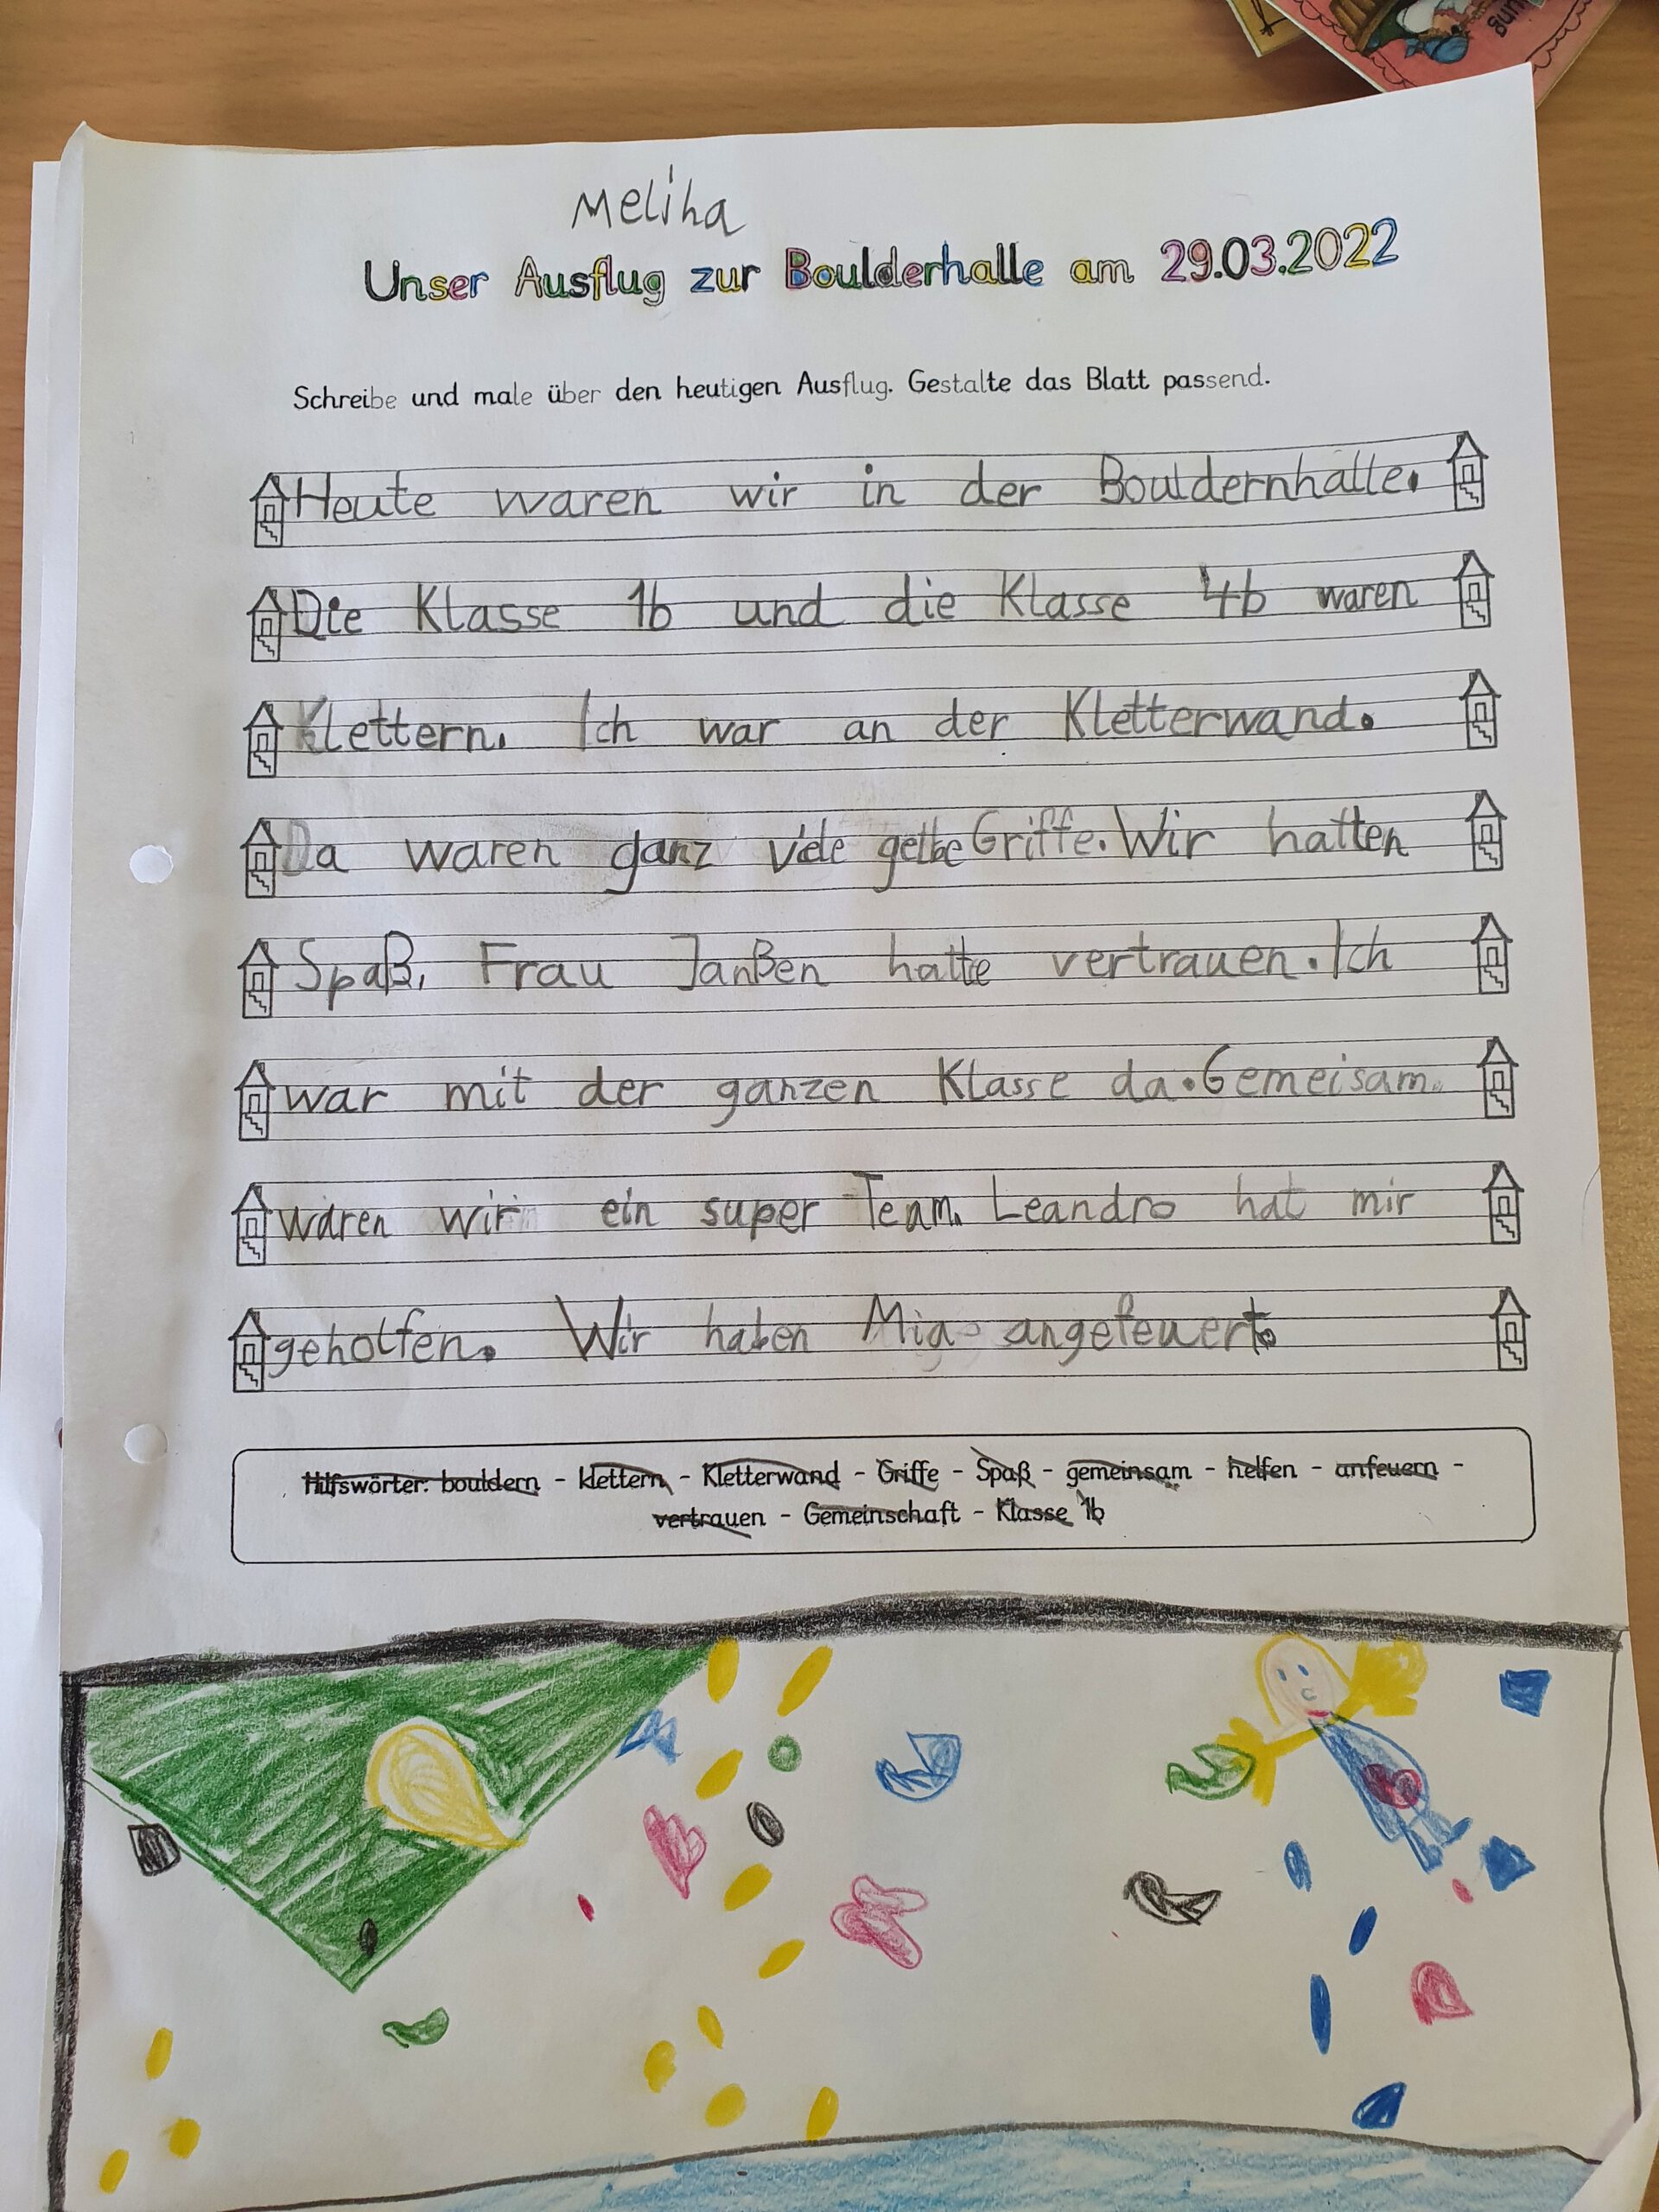 Meliha
Unser Ausflug zur Boulderhalle am 29.03.2022
Schreibe und male über den heutigen Ausflug. Gestalte das Blatt passend.
Heute waren wir in der Bouldernhalle.
Die Klasse 1b und die Klasse 4b waren
Klettern. Ich war an der Kletterwand.
Da waren ganz viele gelbe Griffe. Wir hatten
Spaß, Frau Janßen hatte vertrauen. Ich
war mit der ganzen Klasse da. Gemeisam.
waren wir ein super Team. Leandro hat mir
geholfen. Wir haben Mia angefeuert.
Hilfswörter: bouldern - klettern - Kletterwand - Griffe - Spaß - gemeinsam - helfen - anfeuern -
vertrauen - Gemeinschaft - Klasse 1b